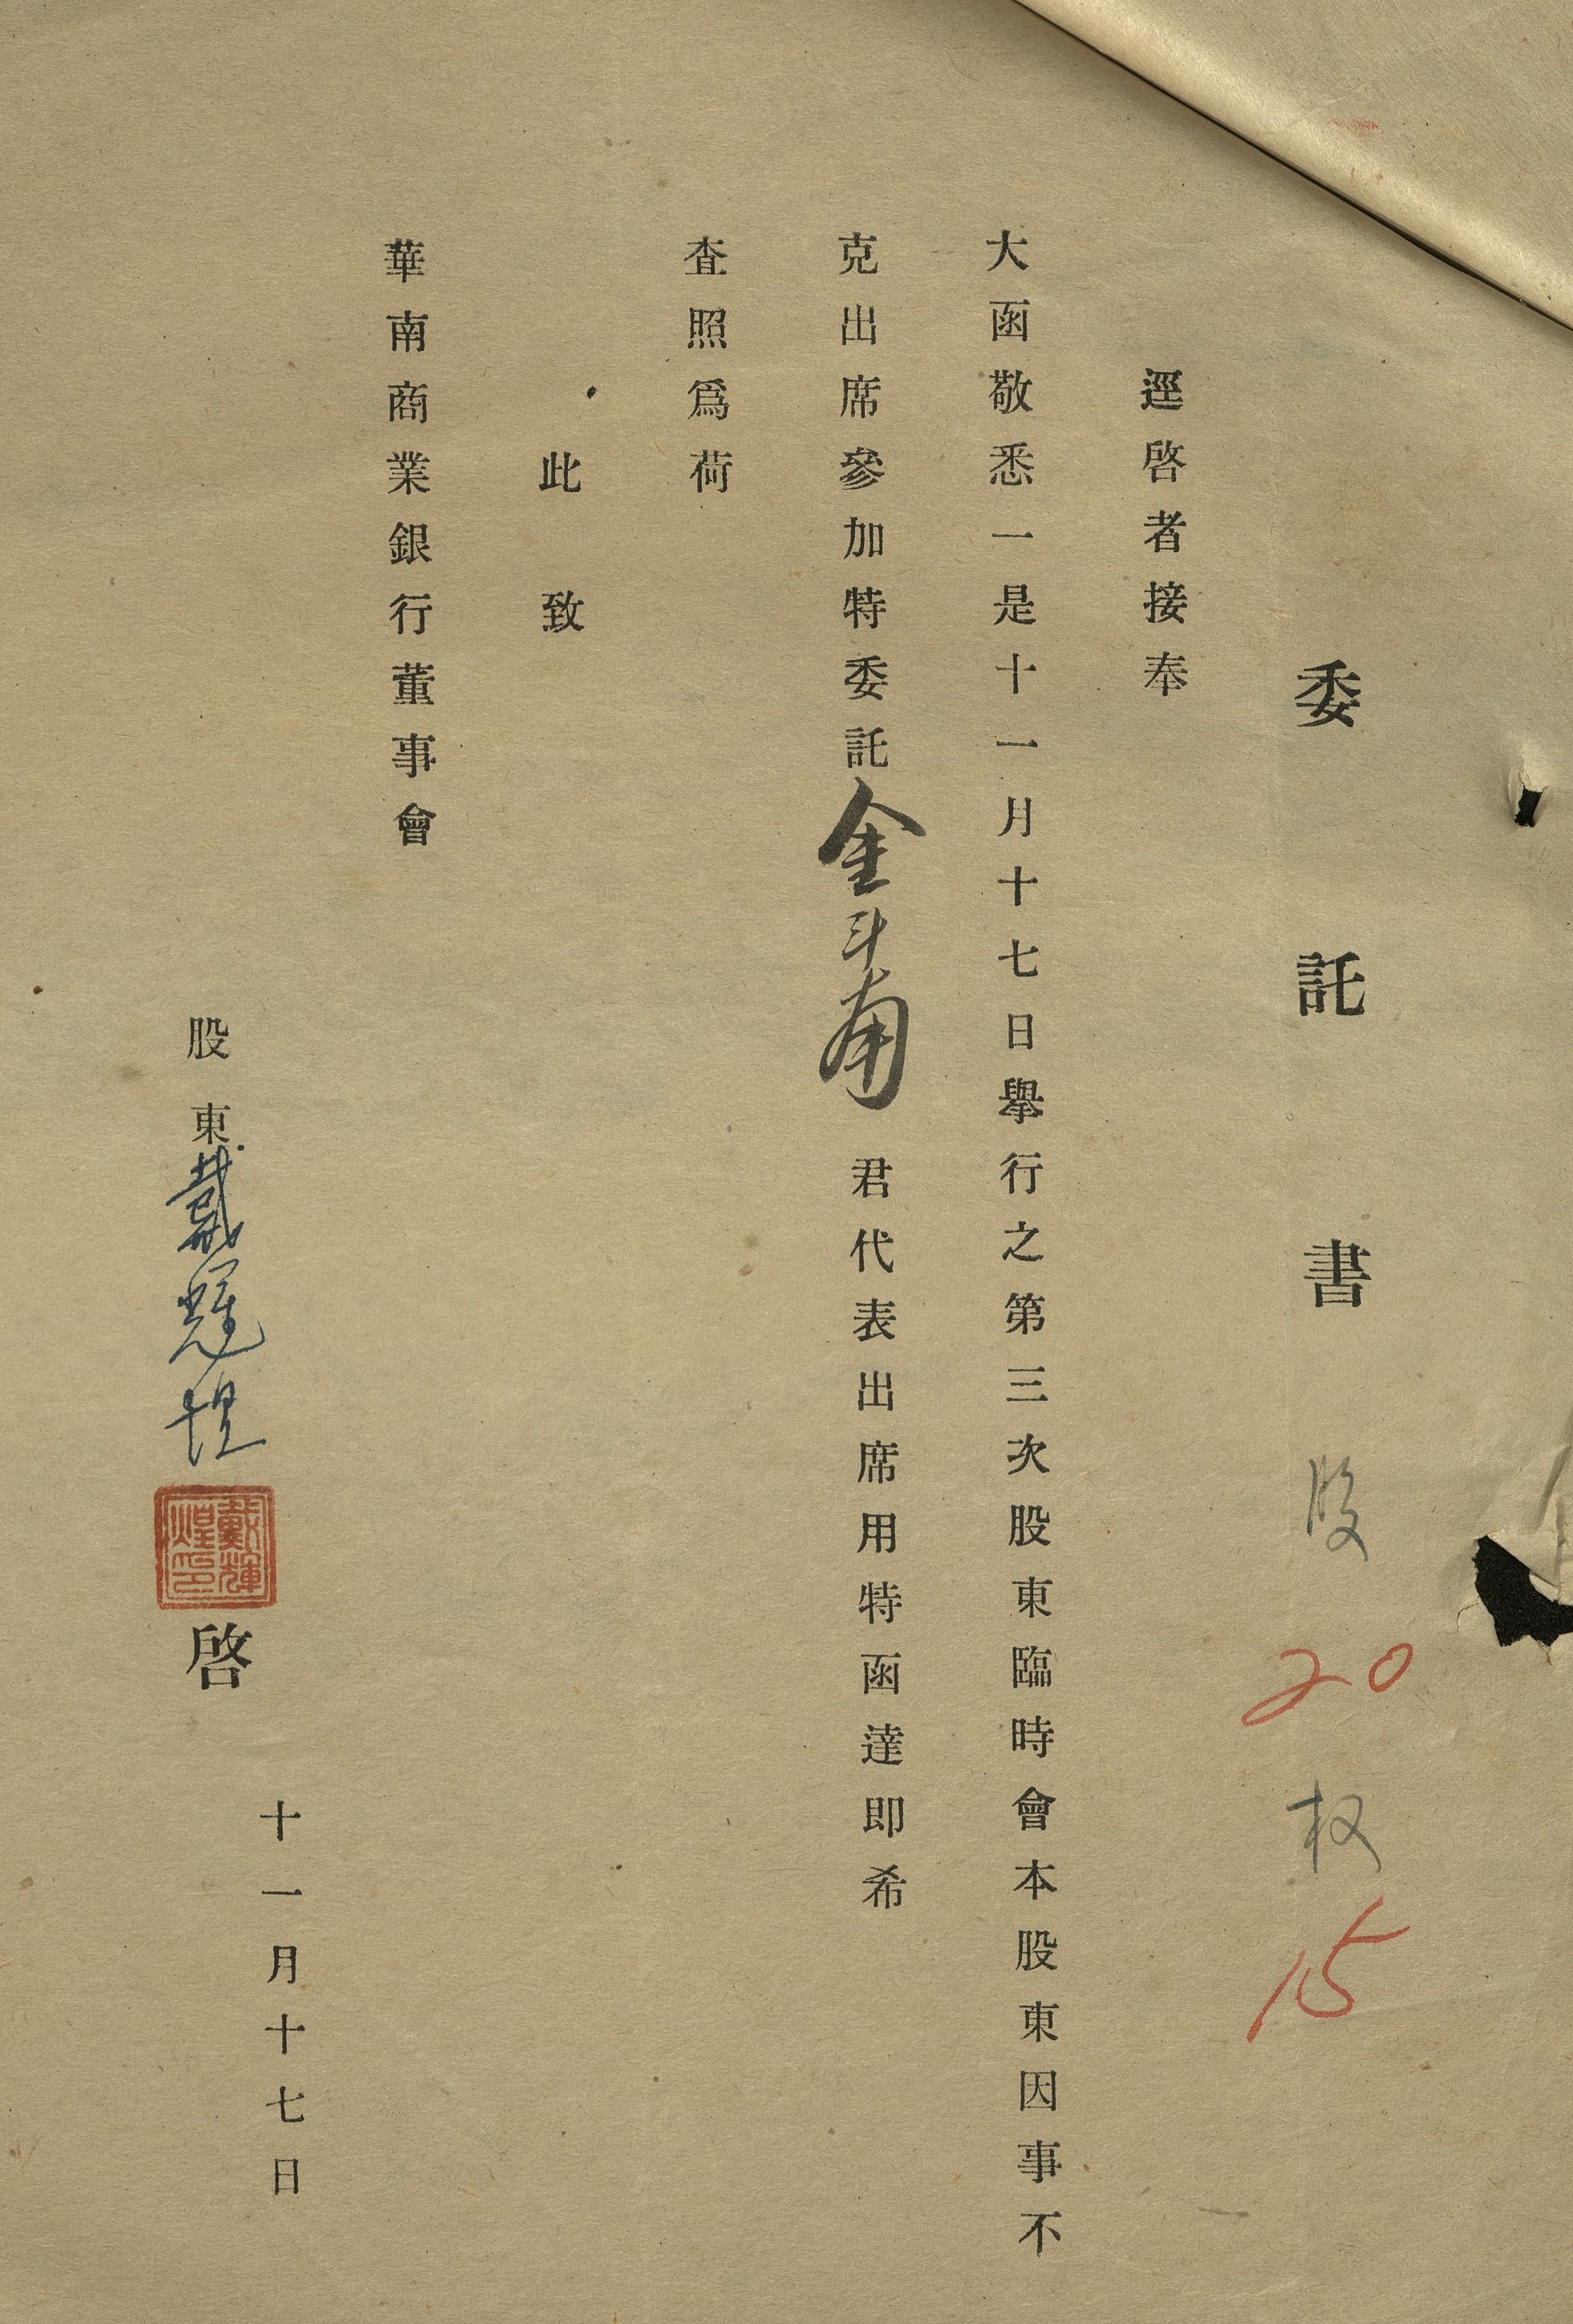 委託書 股 20 权 15
逕啓者接奉
大函敬悉一是十一月十七日舉行之第三次股東臨時會本股東因事不
克出席參加特委託金斗甫君代表出席用特函達即希
查照爲荷
此致
華南商業銀行董事會
股東戴輝煌啓
戴輝煌印
十一月十七日